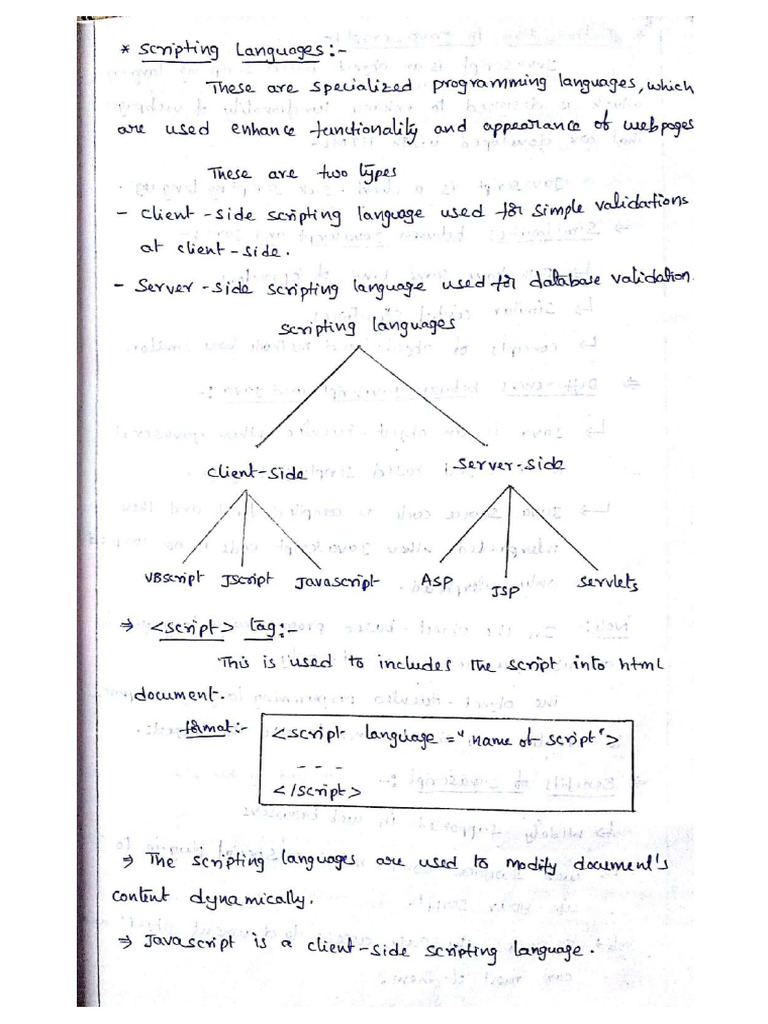 * Scripting Languages:-
These are specialized programming languages, which
are used enhance functionality and appearance of webpages
These are two types
- Client-side scripting language used for simple validations
at client-side.
- Server-side scripting language used for database validation.
Scripting languages
Client-side Server-side
VBscript JScript Javascript ASP JSP Servlets
⇒ <script> tag:-
This is used to includes the script into html
document.
format:- <script language="name of script">
- - -
</script>
⇒ The scripting-languages are used to modify document's
content dynamically.
⇒ Javascript is a client-side scripting language.